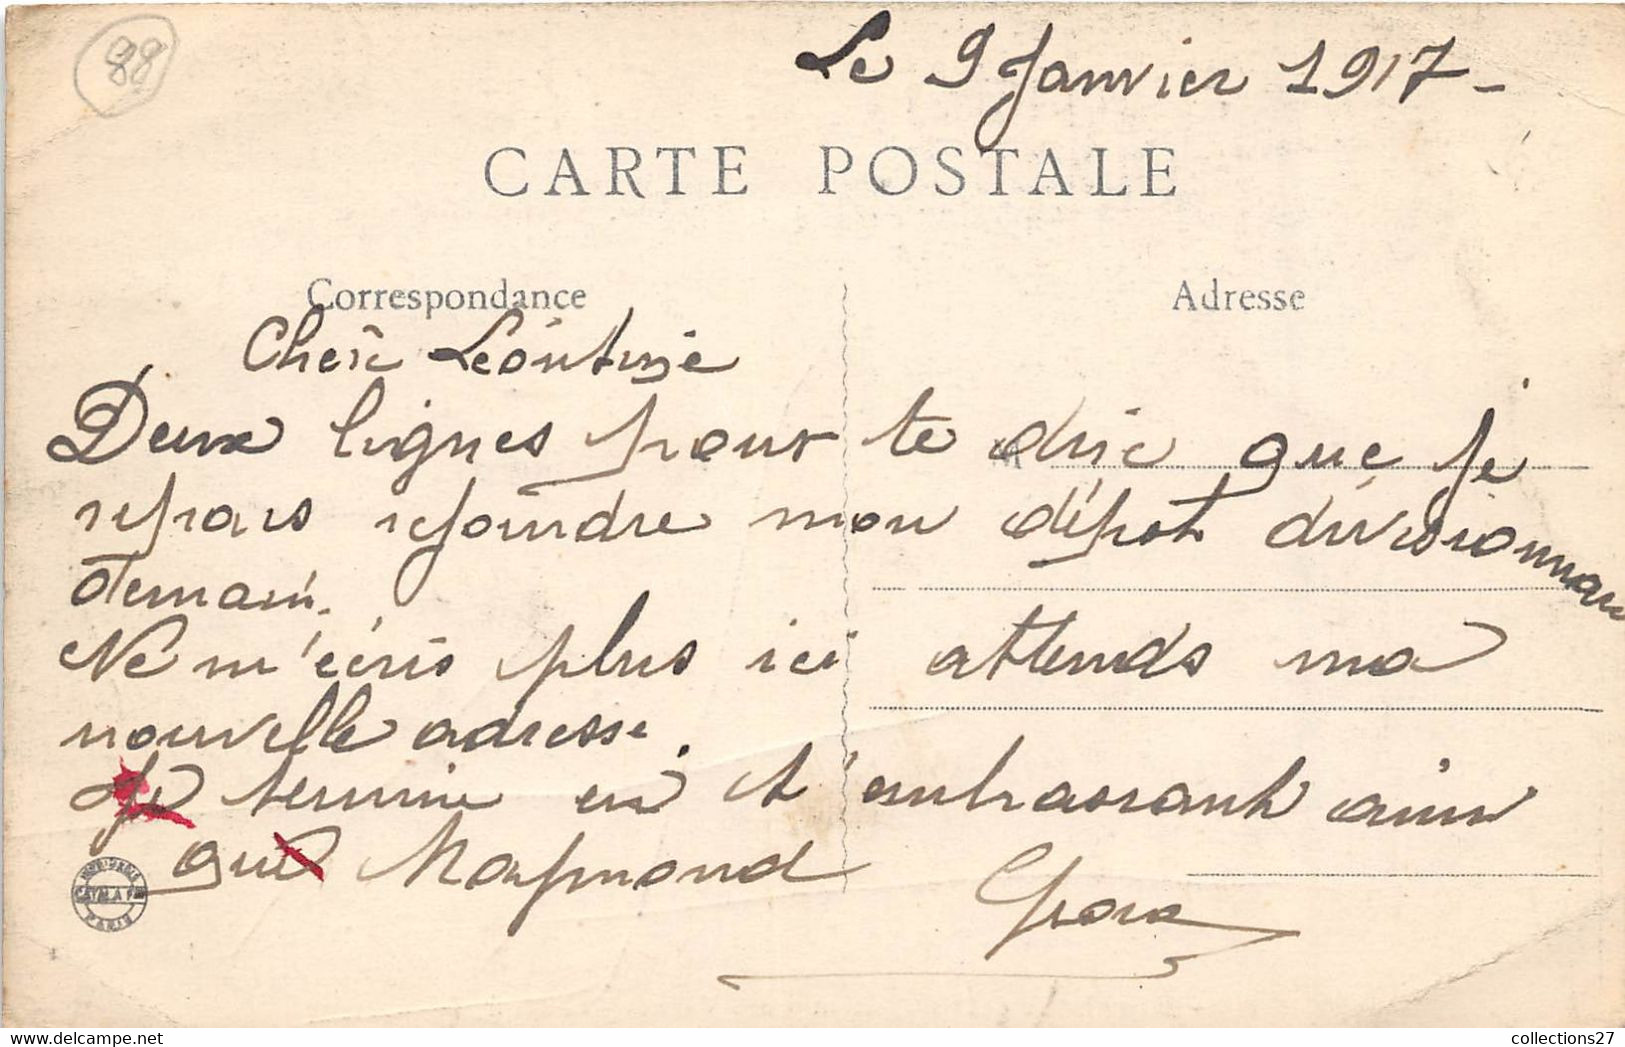 88
Le 9 Janvier 1917 -
CARTE POSTALE
Correspondance
Adresse
Chère Léontine
Deux lignes pour te dire que je
repars rejoindre mon dépot divisionnaire
demain.
Ne m'écris plus ici attends ma
nouvelle adresse.
Je termine en t'embrassant ainsi
que Raymond
PARIS
collections27